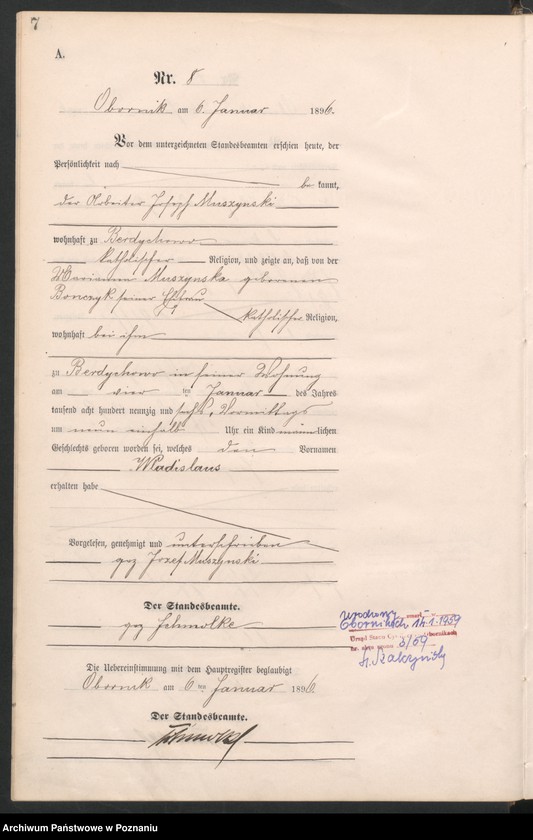 7
A.
Nr. 8
Obornik am 6. Januar 1896.
Vor dem unterzeichneten Standesbeamten erschien heute, der
Persönlichkeit nach
be kannt,
der Arbeiter Joseph Muszynski
wohnhaft zu Berdychowo
katholischer Religion, und zeigte an, daß von der
Marianna Muszynska geborenen
Bonczyk seiner Ehefrau
katholischer Religion,
wohnhaft bei ihm
zu Berdychowo in seiner Wohnung
am vier ten Januar des Jahres
tausend acht hundert neunzig und sechs, Vormittags
um neun einhalb Uhr ein Kind männlichen
Geschlechts geboren worden sei, welches den Vornamen
Wladislaus
erhalten habe
Vorgelesen, genehmigt und unterschrieben
gez Jozef Muszynski
Der Standesbeamte.
gez Schmolke
Die Uebereinstimmung mit dem Hauptregister beglaubigt
Obornik am 6 ten Januar 1896
Der Standesbeamte.
Schmolke
zmarł
Obornikach 14.1.1959
Urząd Stanu Obornikach
5/59
Archiwum Państwowe w Poznaniu